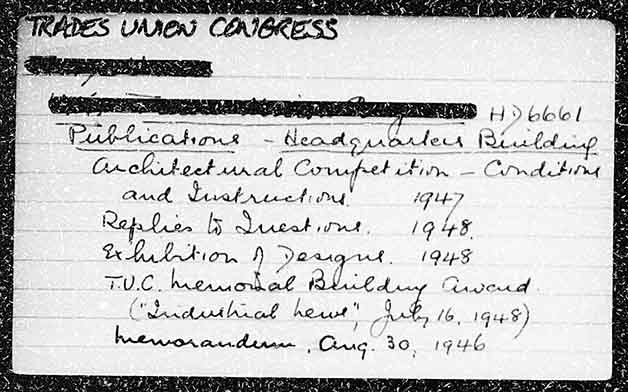 TRADES UNION CONGRESS
HD6661
Publications - Headquarters Building
Architectural Competition - Conditions
and Instructions. 1947
Replies to Questions. 1948.
Exhibition of Designs. 1948
T.U.C. Memorial Building Award.
("Industrial News", July 16, 1948)
Memorandum, Aug. 30, 1946